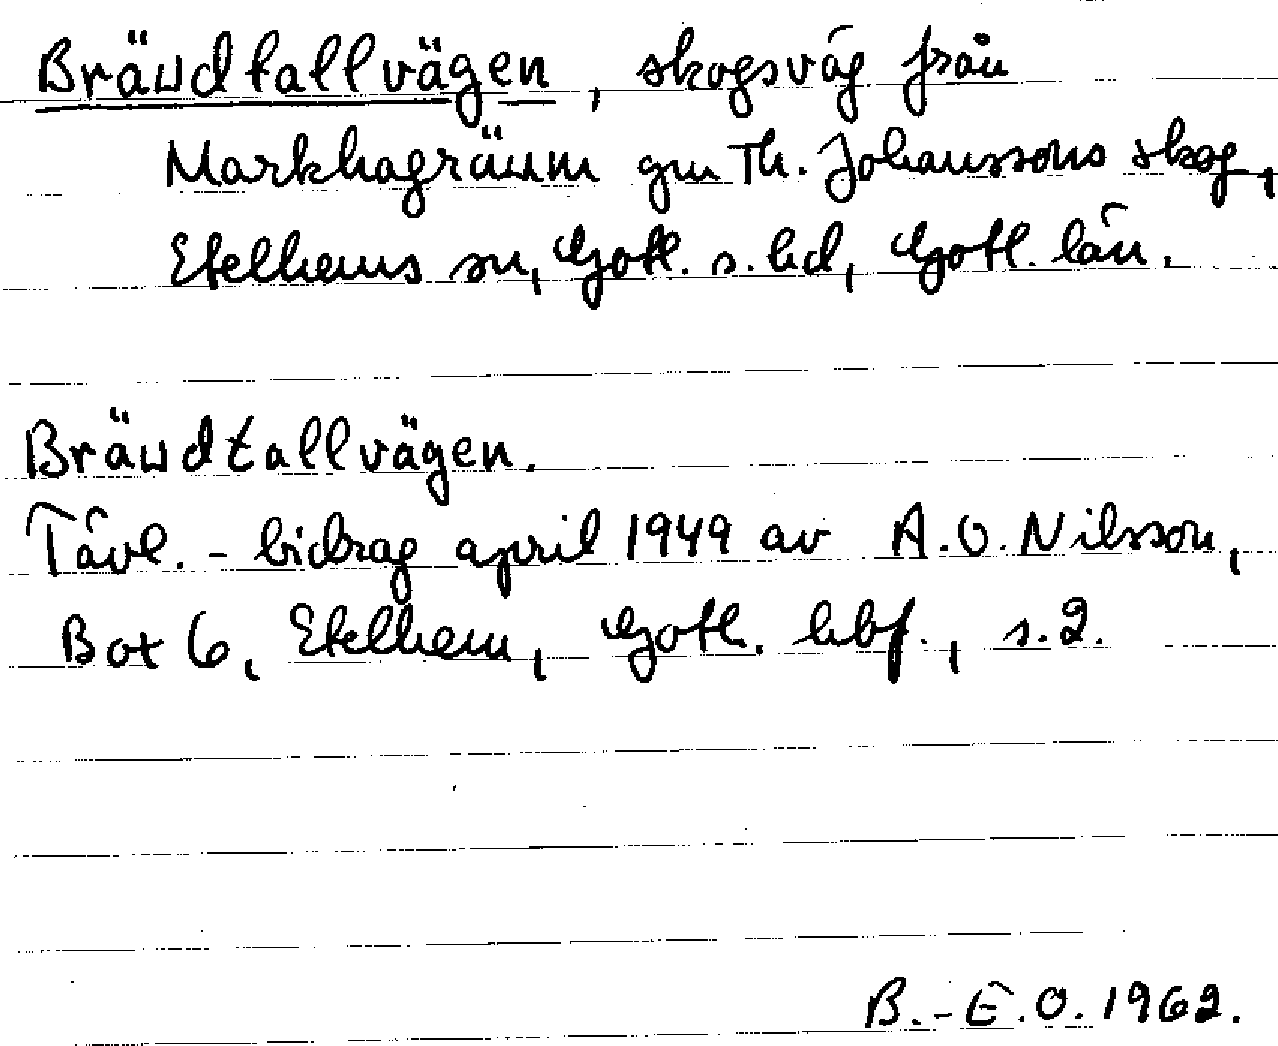 Brändtallvägen, skogsväg från
Markhagräum gm Th. Johanssons skog,
Etelhems sn, Gotl. s. hd, Gotl. län.
Brändtallvägen.
Tävl.-bidrag april 1949 av A.O. Nilsson,
Bot 6, Etelhem, Gotl. hbf., s.2.
B.-E.O. 1962.